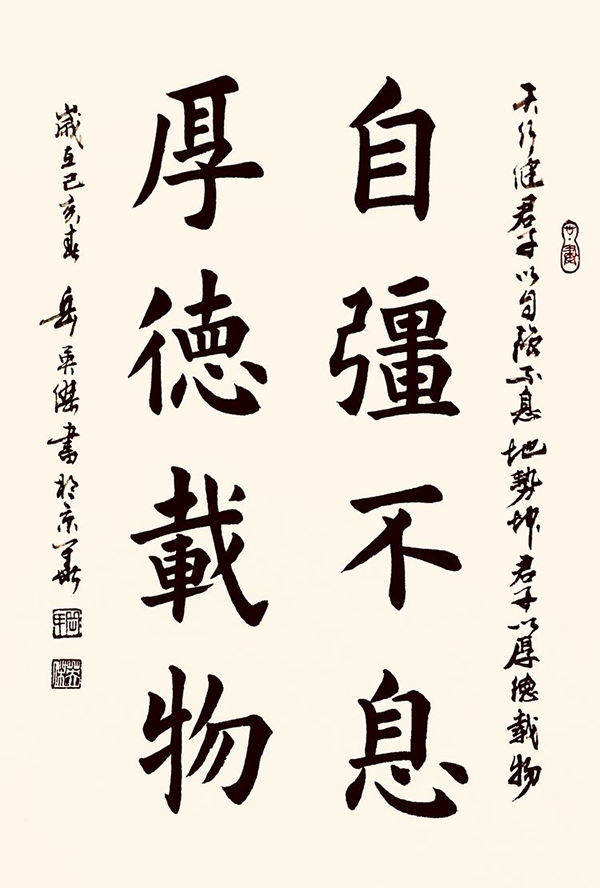 天行健君子以自強不息地勢坤君子以厚德載物
自彊不息
厚德載物
歲在己亥春 岳英傑書於京華